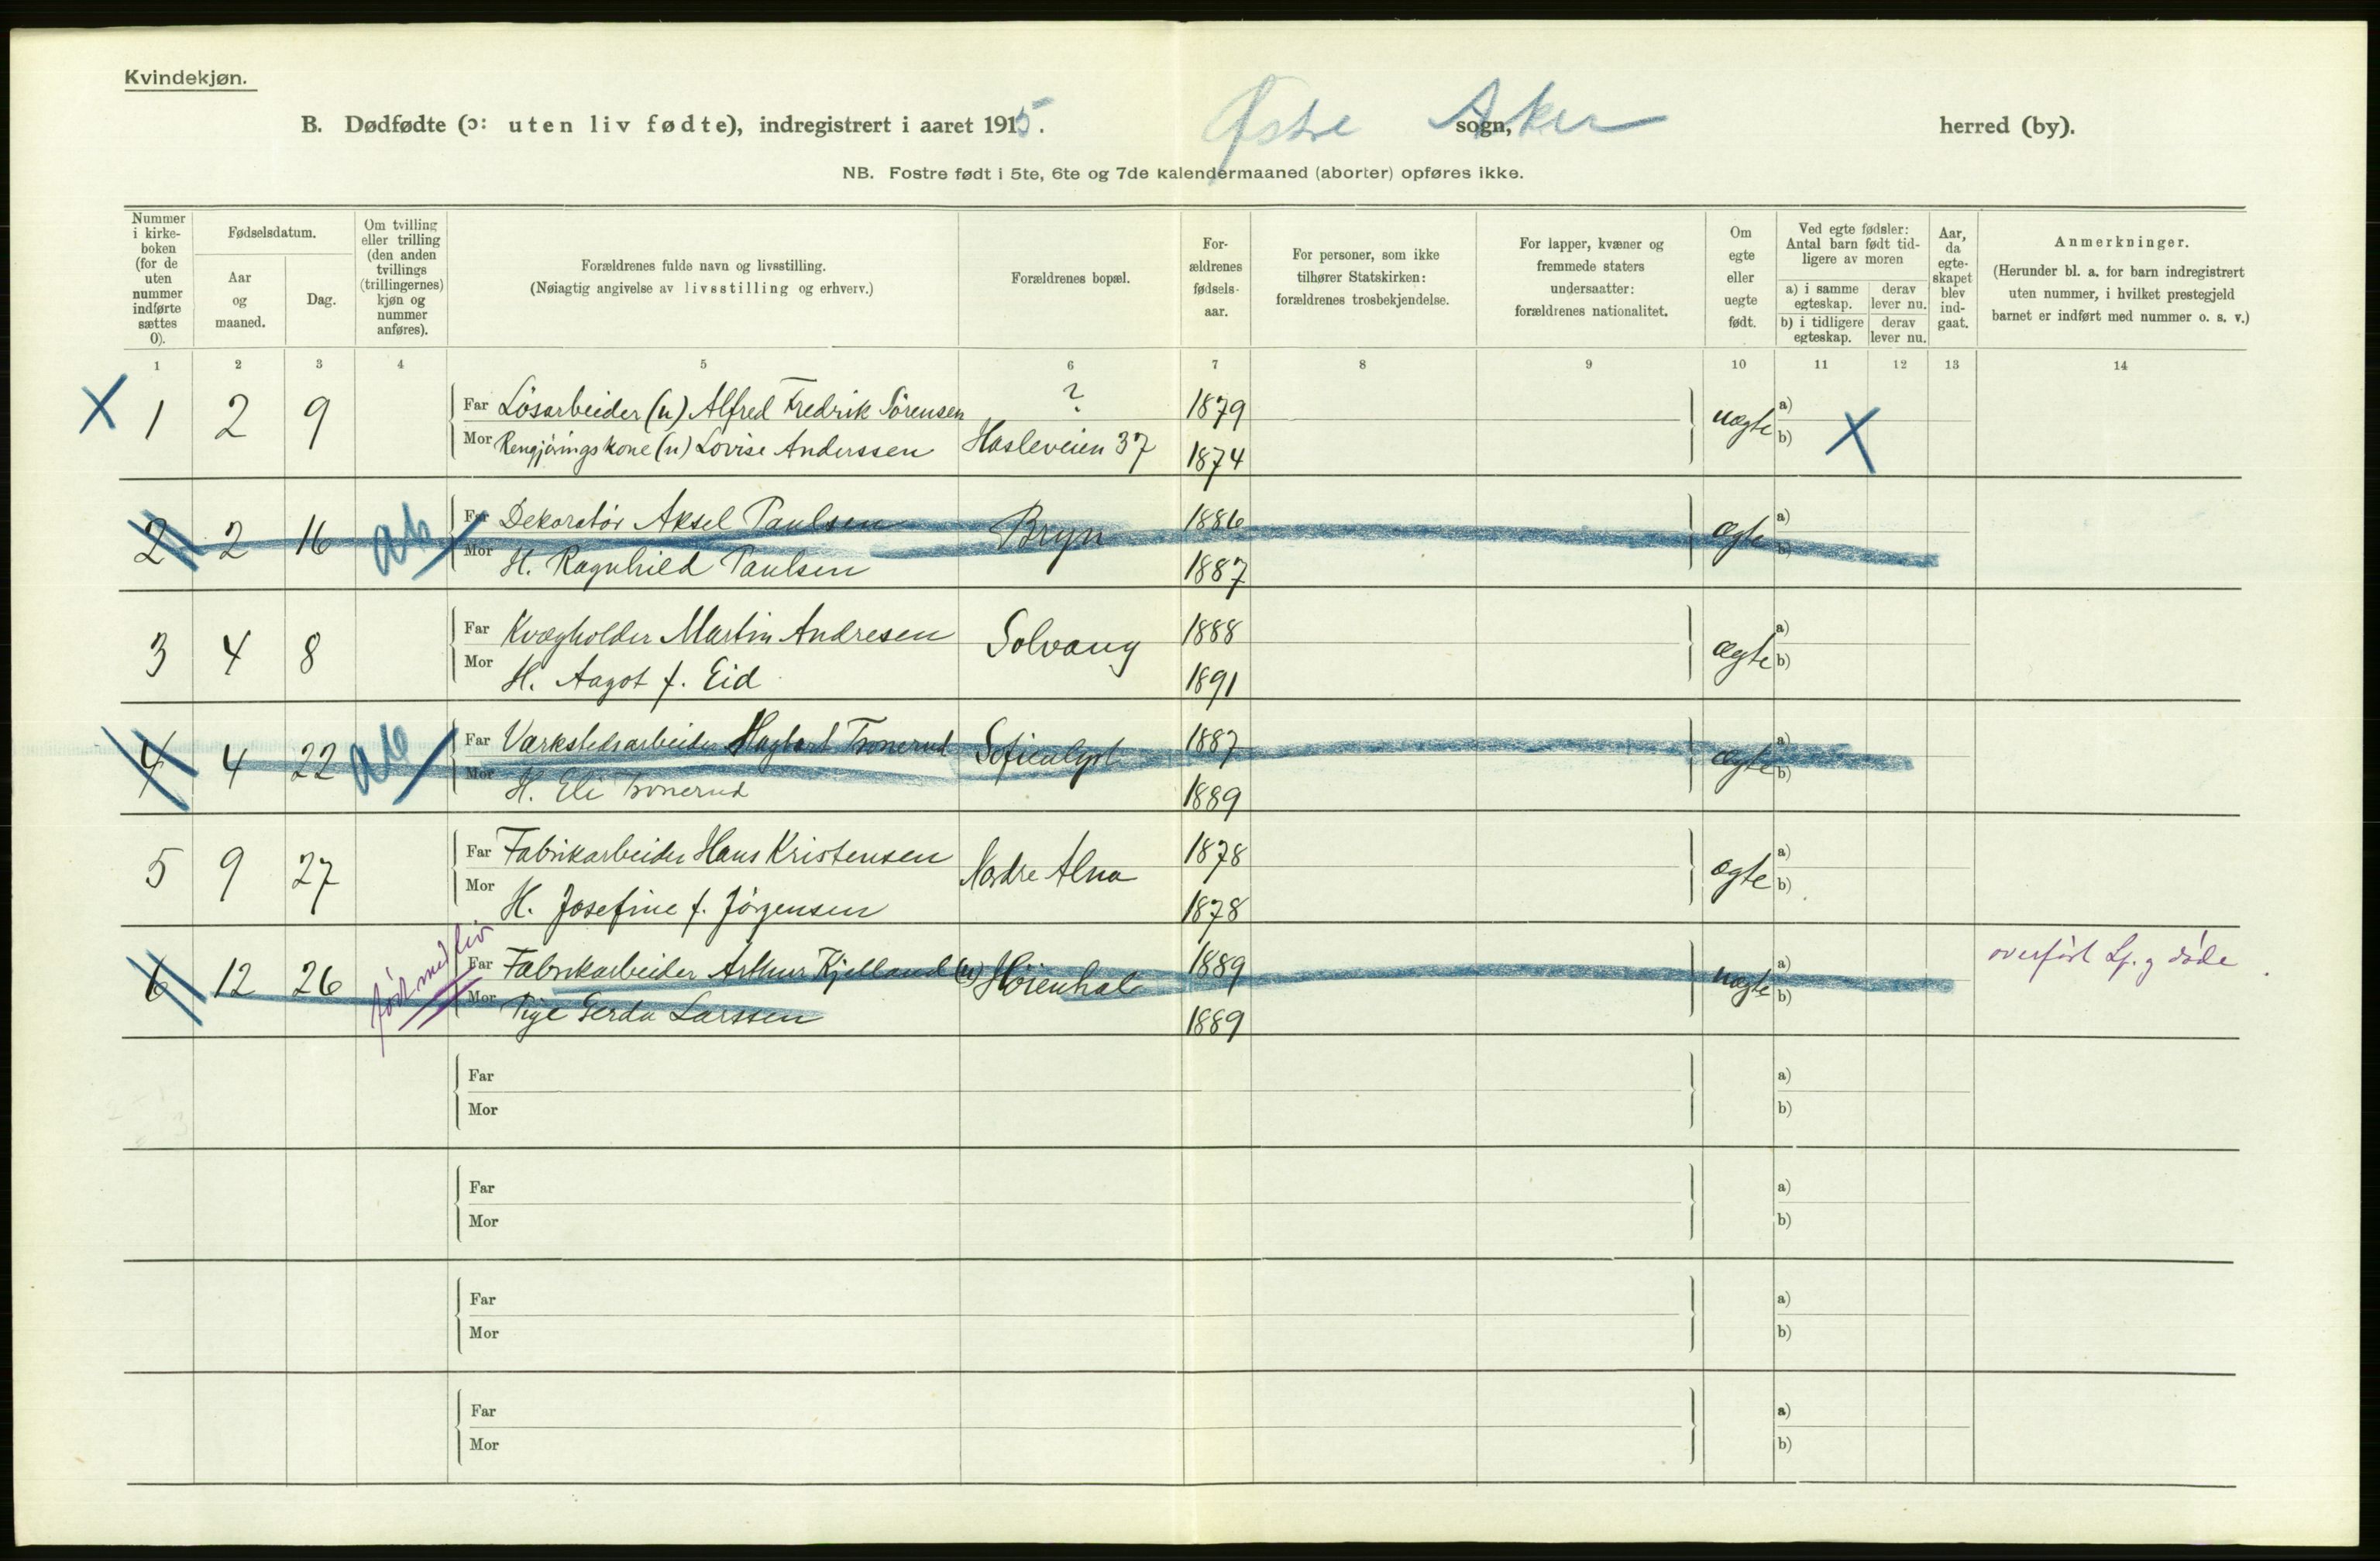 Kvindekjøn.
B. Dødfødte (ɔ: uten liv fødte), indregistrert i aaret 1915. Østre sogn, Aker herred (by).
NB. Fostre født i 5te, 6te og 7de kalendermaaned (aborter) opføres ikke.
Nummer i kirke-boken (for de uten nummer indførte sættes 0).
Fødselsdatum.
Aar og maaned.
Dag.
Om tvilling eller trilling (den anden tvillings (trillingernes) kjøn og nummer anføres).
Forældrenes fulde navn og livsstilling.
(Nøiagtig angivelse av livsstilling og erhverv.)
Forældrenes bopæl.
For-ældrenes fødsels-aar.
For personer, som ikke tilhører Statskirken: forældrenes trosbekjendelse.
For lapper, kvæner og fremmede staters undersaatter: forældrenes nationalitet.
Om egte eller uegte født.
Ved egte fødsler: Antal barn født tid-ligere av moren
a) i samme egteskap. derav lever nu.
b) i tidligere egteskap. derav lever nu.
Aar, da egte-skapet blev ind-gaat.
Anmerkninger.
(Herunder bl. a. for barn indregistrert uten nummer, i hvilket prestegjeld barnet er indført med nummer o. s. v.)
1 2 3 4 5 6 7 8 9 10 11 12 13 14
X 1 2 9 Far Løsarbeider (u) Alfred Fredrik Sørensen ? 1879 uægte a)
Mor Rengjøringskone (u) Lovise Anderssen Hasleveien 37 1874 b) X
2 2 16 ab Far Dekoratør Aksel Paulsen Bryn 1886 ægte a)
Mor H. Ragnhild Paulsen 1887 b)
3 4 8 Far Kvægholder Martin Andresen Solvang 1888 ægte a)
Mor H. Aagot f. Eid 1891 b)
4 4 22 ab Far Værkstedsarbeider Hagbart Tronerud Sofienlyst 1887 ægte a)
Mor H. Eli Tronerud 1889 b)
5 9 27 Far Fabrikarbeider Hans Kristensen Nordre Alna 1878 ægte a)
Mor H. Josefine f. Jørgensen 1878 b)
6 12 26 født med liv Far Fabrikarbeider Arthur Kjelland (u) Høienhal 1889 uægte a) overført Lf. g døde
Mor Pige Gerda Larssen 1889 b)
Far a)
Mor b)
Far a)
Mor b)
Far a)
Mor b)
Far a)
Mor b)